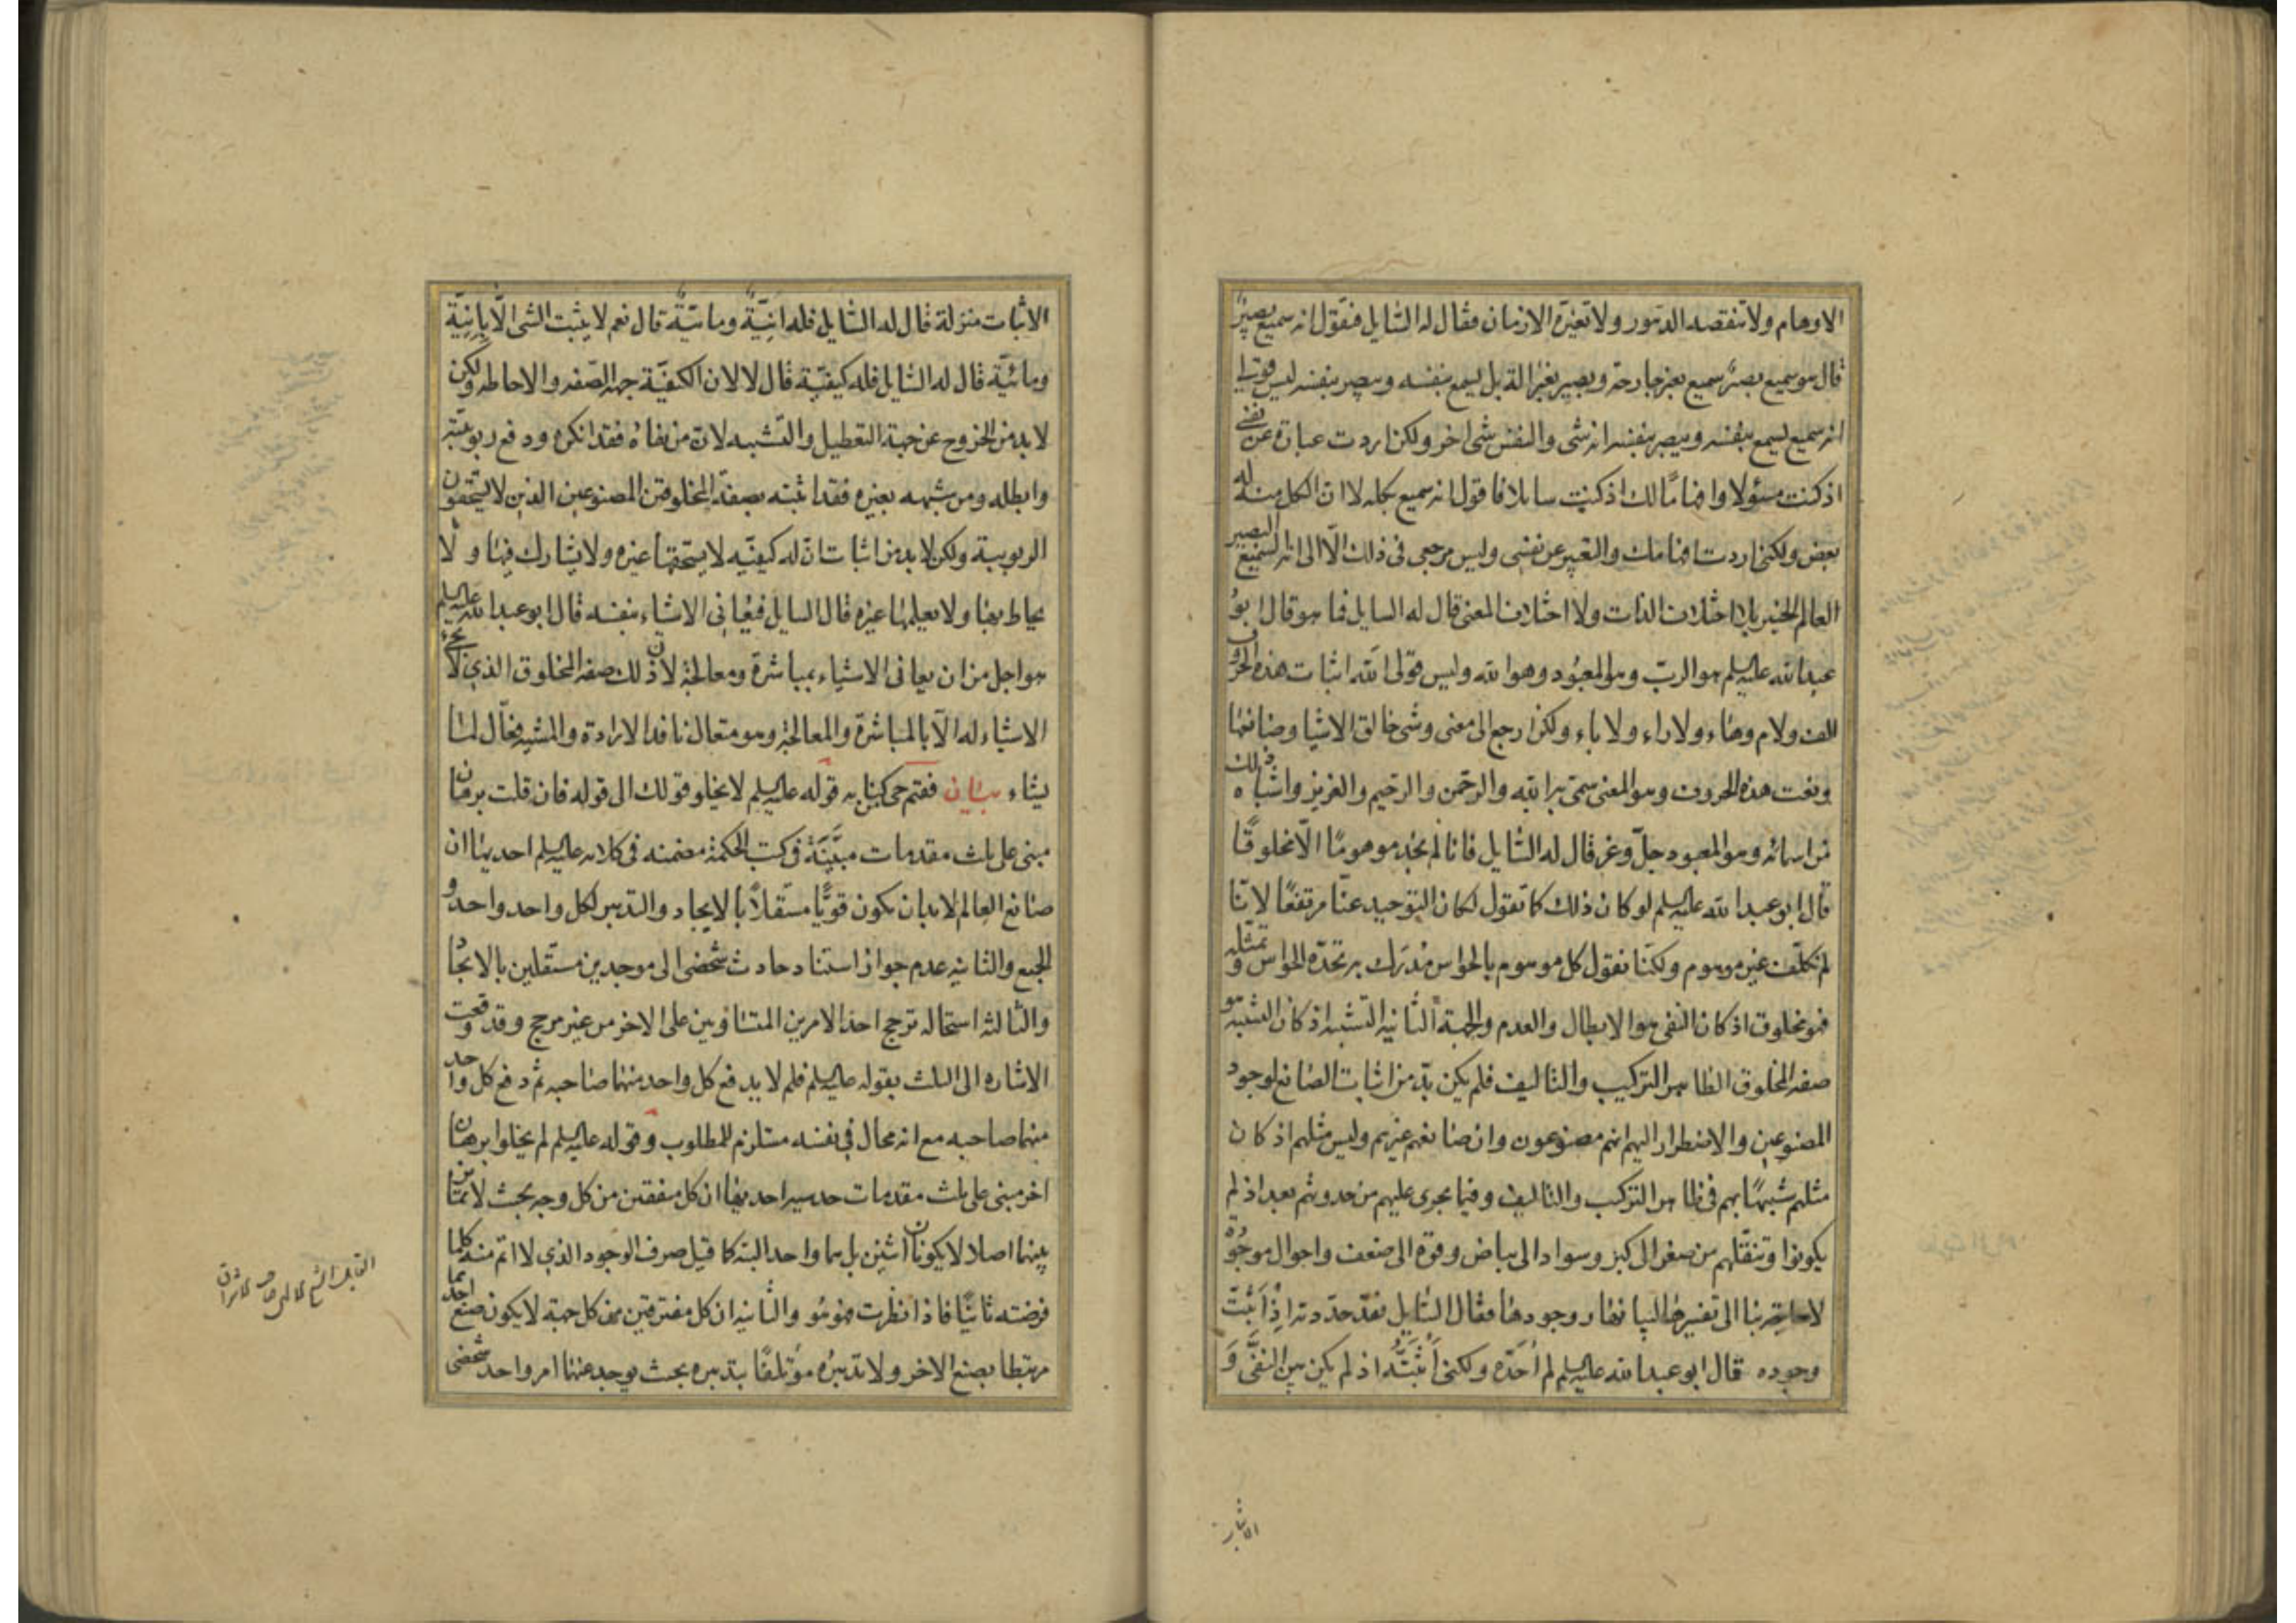 الاوهام ولا تنقصه الدهور ولا تغيره الازمان فقال له السايل فتقول انه سميع بصير
قال هو سميع بصير سميع بغير جارحة وبصير بغير الة بل يسمع بنفسه ويبصر بنفسه ليس قولى
انه سميع يسمع بنفسه ويبصر بنفسه انه شى والنفس شى اخر ولكن اردت عبارة عن نفسى
اذ كنت مسؤلا وافهاما لك اذ كنت سايلا فاقول انه سميع بكله لا ان الكل منه له
بعض ولكنى اردت افهامك والتعبير عن نفسى وليس مرجعى فى ذلك الا الى انه السميع البصير
العالم الخبير بلا اختلاف الذات ولا اختلاف المعنى قال له السايل فما هو قال ابو
عبد الله عليه السلم هو الرب وهو المعبود وهو الله وليس قولى الله اثبات هذه الحروف
الف ولام وهاء ولا راء ولا باء ولكن ارجع الى معنى وشى خالق الاشيا وصانعها
ونعت هذه الحروف وهو المعنى سمى به الله والرحمن والرحيم والعزيز واشباه ذلك
من اسمائه وهو المعبود جل وعز قال له السايل فانا لم نجد موهوما الا مخلوقا
قال ابو عبد الله عليه السلم لو كان ذلك كما تقول لكان التوحيد عنا مرتفعا لانا
لم نكلف غير موهوم ولكنا نقول كل موهوم بالحواس مدرك به تحده الحواس وتمثله
فهو مخلوق اذ كان النفى هو الابطال والعدم والجهة الثانيه التشبيه اذ كان التشبيه هو
صفه المخلوق الظاهر التركيب والتاليف فلم يكن بد من اثبات الصانع لوجود
المصنوعين والاضطرار اليهم انهم مصنوعون وان صانعهم غيرهم وليس مثلهم اذ كان
مثلهم شبيها بهم فى ظاهر التركيب والتاليف وفيما يجرى عليهم من حدوثهم بعد اذ لم
يكونوا وتنقلهم من صغر الى كبر وسواد الى بياض وقوة الى ضعف واحوال موجودة
لا حاجة بنا الى تفسيرها لبيانها ووجودها فقال السايل فقد حددته اذ اثبت
وجوده قال ابو عبد الله عليه السلم لم احده ولكنى اثبته اذ لم يكن بين النفى و
الاثبات
الاثبات منزلة قال له السايل فله انية ومائية قال نعم لا يثبت الشى الا بانية
ومائية قال له السايل فله كيفية قال لا لان الكيفية جهه الصفه والاحاطه ولكن
لا بد من الخروج عن جهة التعطيل والتشبيه لان من نفاه فقد انكره ودفع ربوبيته
وابطله ومن شبهه بغيره فقد اثبته بصفة المخلوقين المصنوعين الذين لا يستحقون
الربوبية ولكن لا بد من اثبات ان له كيفيه لا يستحقها غيره ولا يشارك فيها ولا
يحاط بها ولا يعلمها غيره قال السايل فيعانى الاشياء بنفسه قال ابو عبد الله عليه السلم
هو اجل من ان يعانى الاشياء بمباشرة ومعالجة لان ذلك صفه المخلوق الذى لا يجىء
الاشياء له الا بالمباشرة والمعالجة وهو متعال نافذ الارادة والمشيه فعال لما
يشاء بيان فقتم حى قوله عليه السلم لا يخلو قولك الى قوله فان قلت برهان
مبنى على ثلث مقدمات مبينة فى كتب الحكمة مضمنه فى كلامه عليه السلم احديها ان
صانع العالم لا بد ان يكون قويا مستقلا بالايجاد والتدبير لكل واحد واحد و
الجميع والثانيه عدم جواز استناد حادث شخصى الى موجدين مستقلين بالايجاد
والثالثه استحاله ترجح احد الامرين المتساويين على الاخر من غير مرجح وقد وقعت
الاشاره الى الثلث بقوله عليه السلم فلم لا يدفع كل واحد منهما صاحبه ثم دفع كل واحد
منهما صاحبه مع انه محال فى نفسه مستلزم للمطلوب وقوله عليه السلم لم يخلوا برهان
اخر مبنى على ثلث مقدمات حدسيه احديها ان كل متفقين من كل وجه بحيث لا تمايز
بينهما اصلا لا يكونان اثنين بل هما واحد البته كما قيل صرف الوجود الذى لا اتم منه كلما
فرضته ثانيا فاذا نظرت فهو هو والثانيه ان كل مفترقين من كل جهة لا يكون صنع احدهما
مرتبطا بصنع الاخر ولا تدبيره مؤتلفا بتدبيره بحيث يوجد عنهما امر واحد شخصى
القايل الشيخ